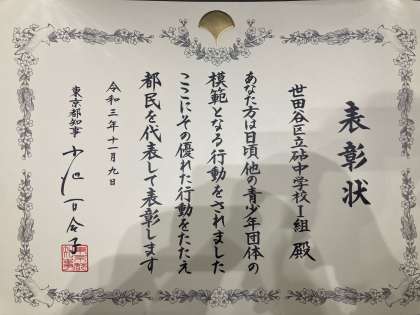 表彰状
世田谷区立砧中学校I組 殿
あなた方は日頃他の青少年団体の
模範となる行動をされました
ここにその優れた行動をたたえ
都民を代表して表彰します
令和三年十一月九日
東京都知事 小池百合子